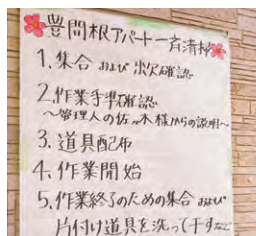 豊間根アパート一斉清掃
1. 集合 および 出欠確認
2. 作業手準確認
～管理人の佐々木様からの説明～
3. 道具配布
4. 作業開始
5. 作業終了のための集合 および
片付け道具を洗って干すなど